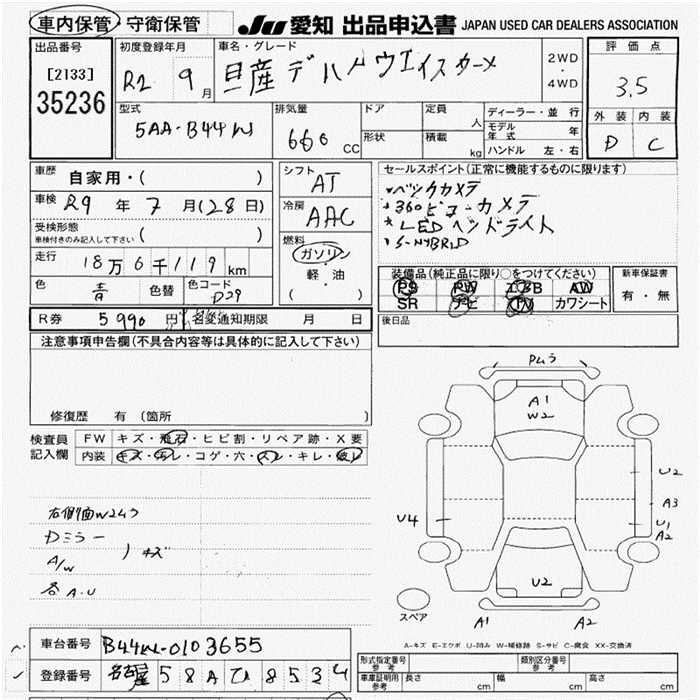 車内保管・守衛保管
JU 愛知 出品申込書 JAPAN USED CAR DEALERS ASSOCIATION
出品番号
[2133]
35236
初度登録年月
R2 9月
車名・グレード
日産デイズハイウェイスター
2WD
・
4WD
評価点
3.5
外装 内装
D C
型式
5AA-B44W
排気量
660 CC
ドア
形状
定員 人
積載 kg
ディーラー・並行
モデル年式 年
ハンドル 左・右
車歴 自家用・( )
車検 R9年7月(28日)
受検形態
車検付きのみ記入して下さい ( )
走行 18万6千119km
色 青 色替 色コード
シフト
AT
冷房
AAC
燃料
ガソリン
軽・油
( )
セールスポイント(正常に機能するものに限ります)
360ビューカメラ
LEDヘッドライト
S-HYBRID
装備品(純正品に限り○をつけてください)
PS PW エアB AW
SR ナビ TV カワシート
新車保証書
有・無
後日品
R券 5990円 名変通知期限 月 日
注意事項申告欄(不具合内容等は具体的に記入して下さい)
修復歴 有(箇所
検査員
記入欄
FW キズ・飛石・ヒビ割・リペア跡・X要
内装 キズ・ヨゴレ・コゲ・穴・スレ・キレ・破レ
右側面W2ムラ
Dミラー
A/W キズ
各A.U
PMムラ
A1
W2
U2
A3
U1
A2
U4
U2
A1 A2
スペア
A-キズ E-エクボ U-凹み W-補修跡 S-サビ C-腐食 XX-交換済
車台番号 B44W-0103655
登録番号 名古屋 58A ひ 8534
形式指定番号
参考
類別区分番号
参考
車庫証明用
参考
長さ cm 幅 cm 高さ cm